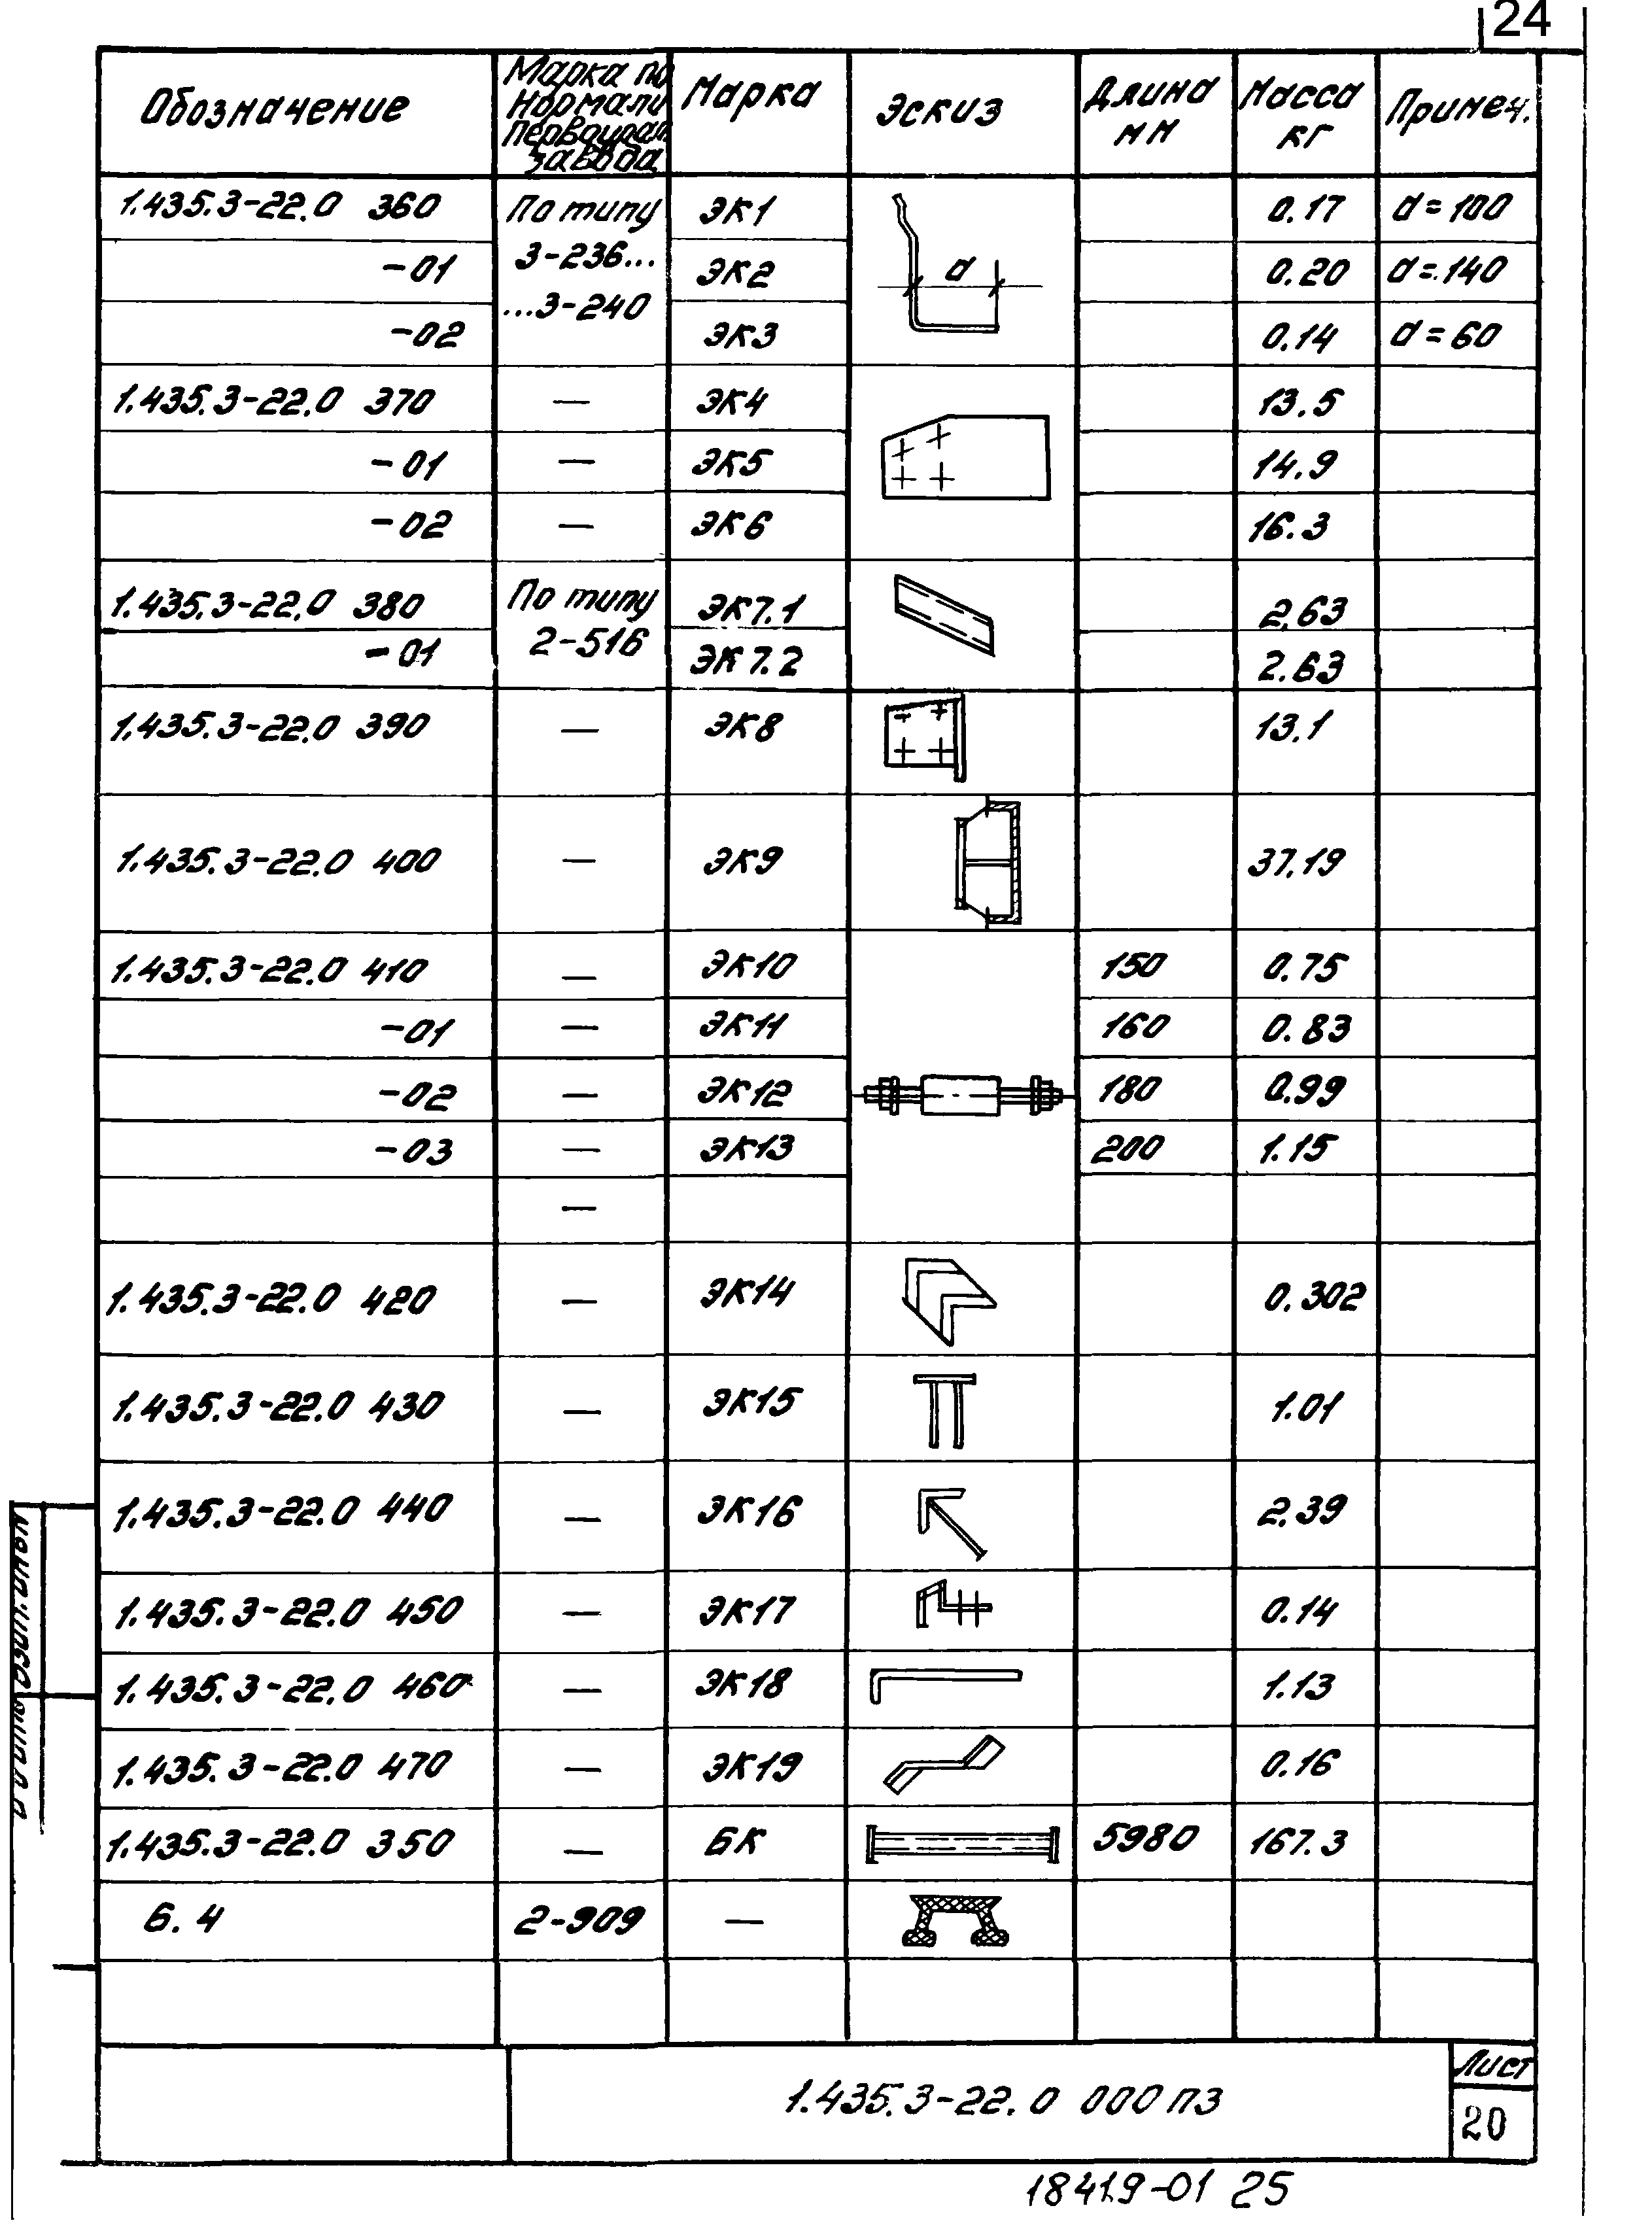 24
Обозначение Марка по Нормали Первоурал. завода Марка Эскиз Длина мм Масса кг Примеч.
1.435.3-22.0 360 По типу ЭК1 0.17 d=100
-01 3-236... ЭК2 d 0.20 d=140
-02 ...3-240 ЭК3 0.14 d=60
1.435.3-22.0 370 — ЭК4 13.5
-01 — ЭК5 14.9
-02 — ЭК6 16.3
1.435.3-22.0 380 По типу ЭК7.1 2.63
-01 2-516 ЭК7.2 2.63
1.435.3-22.0 390 — ЭК8 13.1
1.435.3-22.0 400 — ЭК9 37.19
1.435.3-22.0 410 — ЭК10 150 0.75
-01 — ЭК11 160 0.83
-02 — ЭК12 180 0.99
-03 — ЭК13 200 1.15
—
1.435.3-22.0 420 — ЭК14 0.302
1.435.3-22.0 430 — ЭК15 1.01
1.435.3-22.0 440 — ЭК16 2.39
1.435.3-22.0 450 — ЭК17 0.14
1.435.3-22.0 460 — ЭК18 1.13
1.435.3-22.0 470 — ЭК19 0.16
1.435.3-22.0 350 — БК 5980 167.3
Б.4 2-909 —
1.435.3-22.0 000 ПЗ
Лист
20
18419-01 25